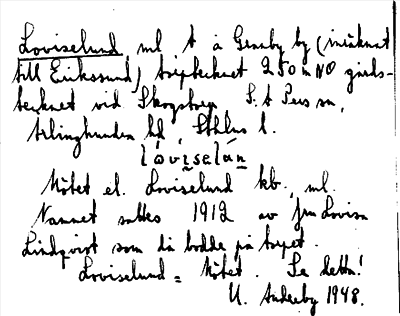 Loviselund, ml t å Granby by (inräknat
till Erikssund) torptecknet 250 m NO gårds-
tecknet vid Skogstorp S:t Pers sn,
Ärlinghundra hd, Sthlms l.
lòvi̱selún
Mötet el. Loviselund kb., ml.
Namnet sattes 1912 av fru Lovisa
Lindqvist som då bodde på torpet.
Loviselund = Mötet. Se detta!
U. Anderby 1948.